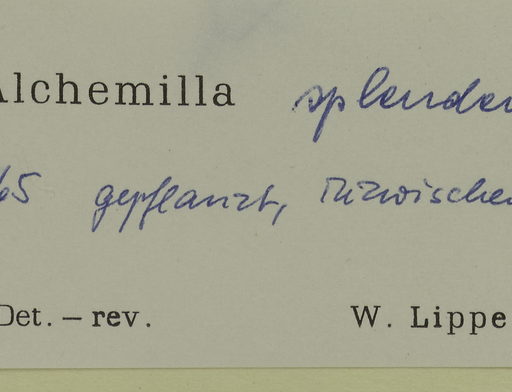 Alchemilla splenden
65 gepflanzt, inzwischen
Det. – rev. W. Lippe